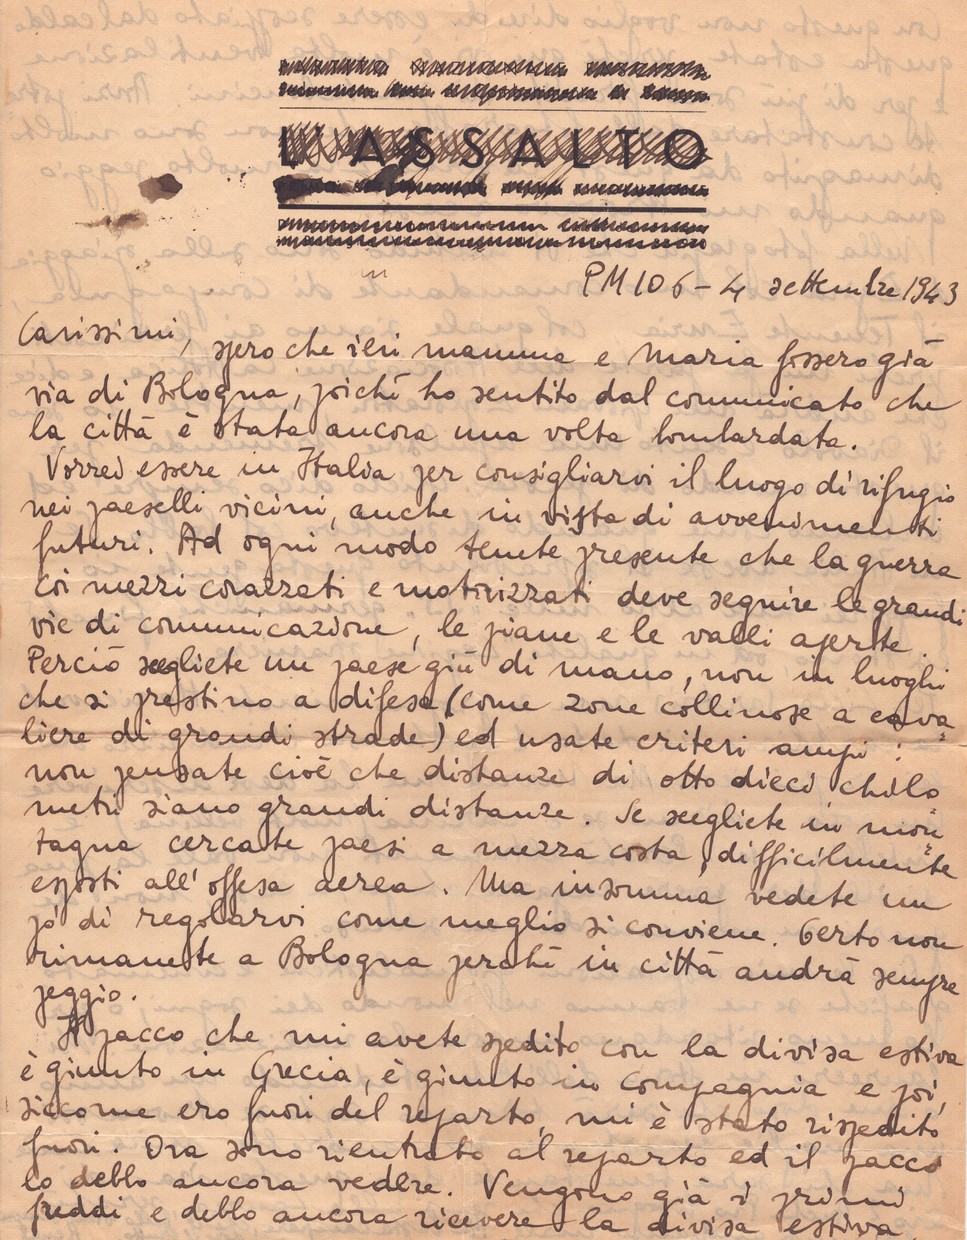 L'ASSALTO
PM 106 - 4 settembre 1943
Carissimi, spero che ieri mamma e Maria fossero già
via di Bologna, poiché ho sentito dal comunicato che
la città è stata ancora una volta bombardata.
Vorrei essere in Italia per consigliarvi il luogo di rifugio
nei paeselli vicini, anche in vista di avvenimenti
futuri. Ad ogni modo tenete presente che la guerra
coi mezzi corazzati e motorizzati deve seguire le grandi
vie di comunicazione, le piane e le valli aperte.
Perciò scegliete un paese giù di mano, non in luoghi
che si prestino a difesa (come zone collinose a cava
liere di grandi strade) ed usate criteri ampi:
non pensate cioè che distanze di otto dieci chilo=
metri siano grandi distanze. Se scegliete in mon=
tagna cercate paesi a mezza costa, difficilmente
esposti all'offesa aerea. Ma insomma vedete un
po' di regolarvi come meglio si conviene. Certo non
rimanete a Bologna perché in città andrà sempre
peggio.
Il pacco che mi avete spedito con la divisa estiva
è giunto in Grecia, è giunto in Compagnia e poi,
siccome ero fuori del reparto, mi è stato rispedito
fuori. Ora sono rientrato al reparto ed il pacco
lo debbo ancora vedere. Vengono già i primi
freddi e debbo ancora ricevere la divisa estiva.